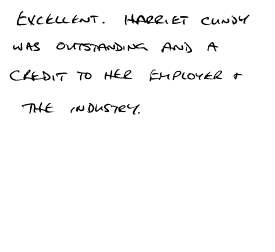 EXCELLENT. HARRIET CUNDY
WAS OUTSTANDING AND A
CREDIT TO HER EMPLOYER +
THE INDUSTRY.